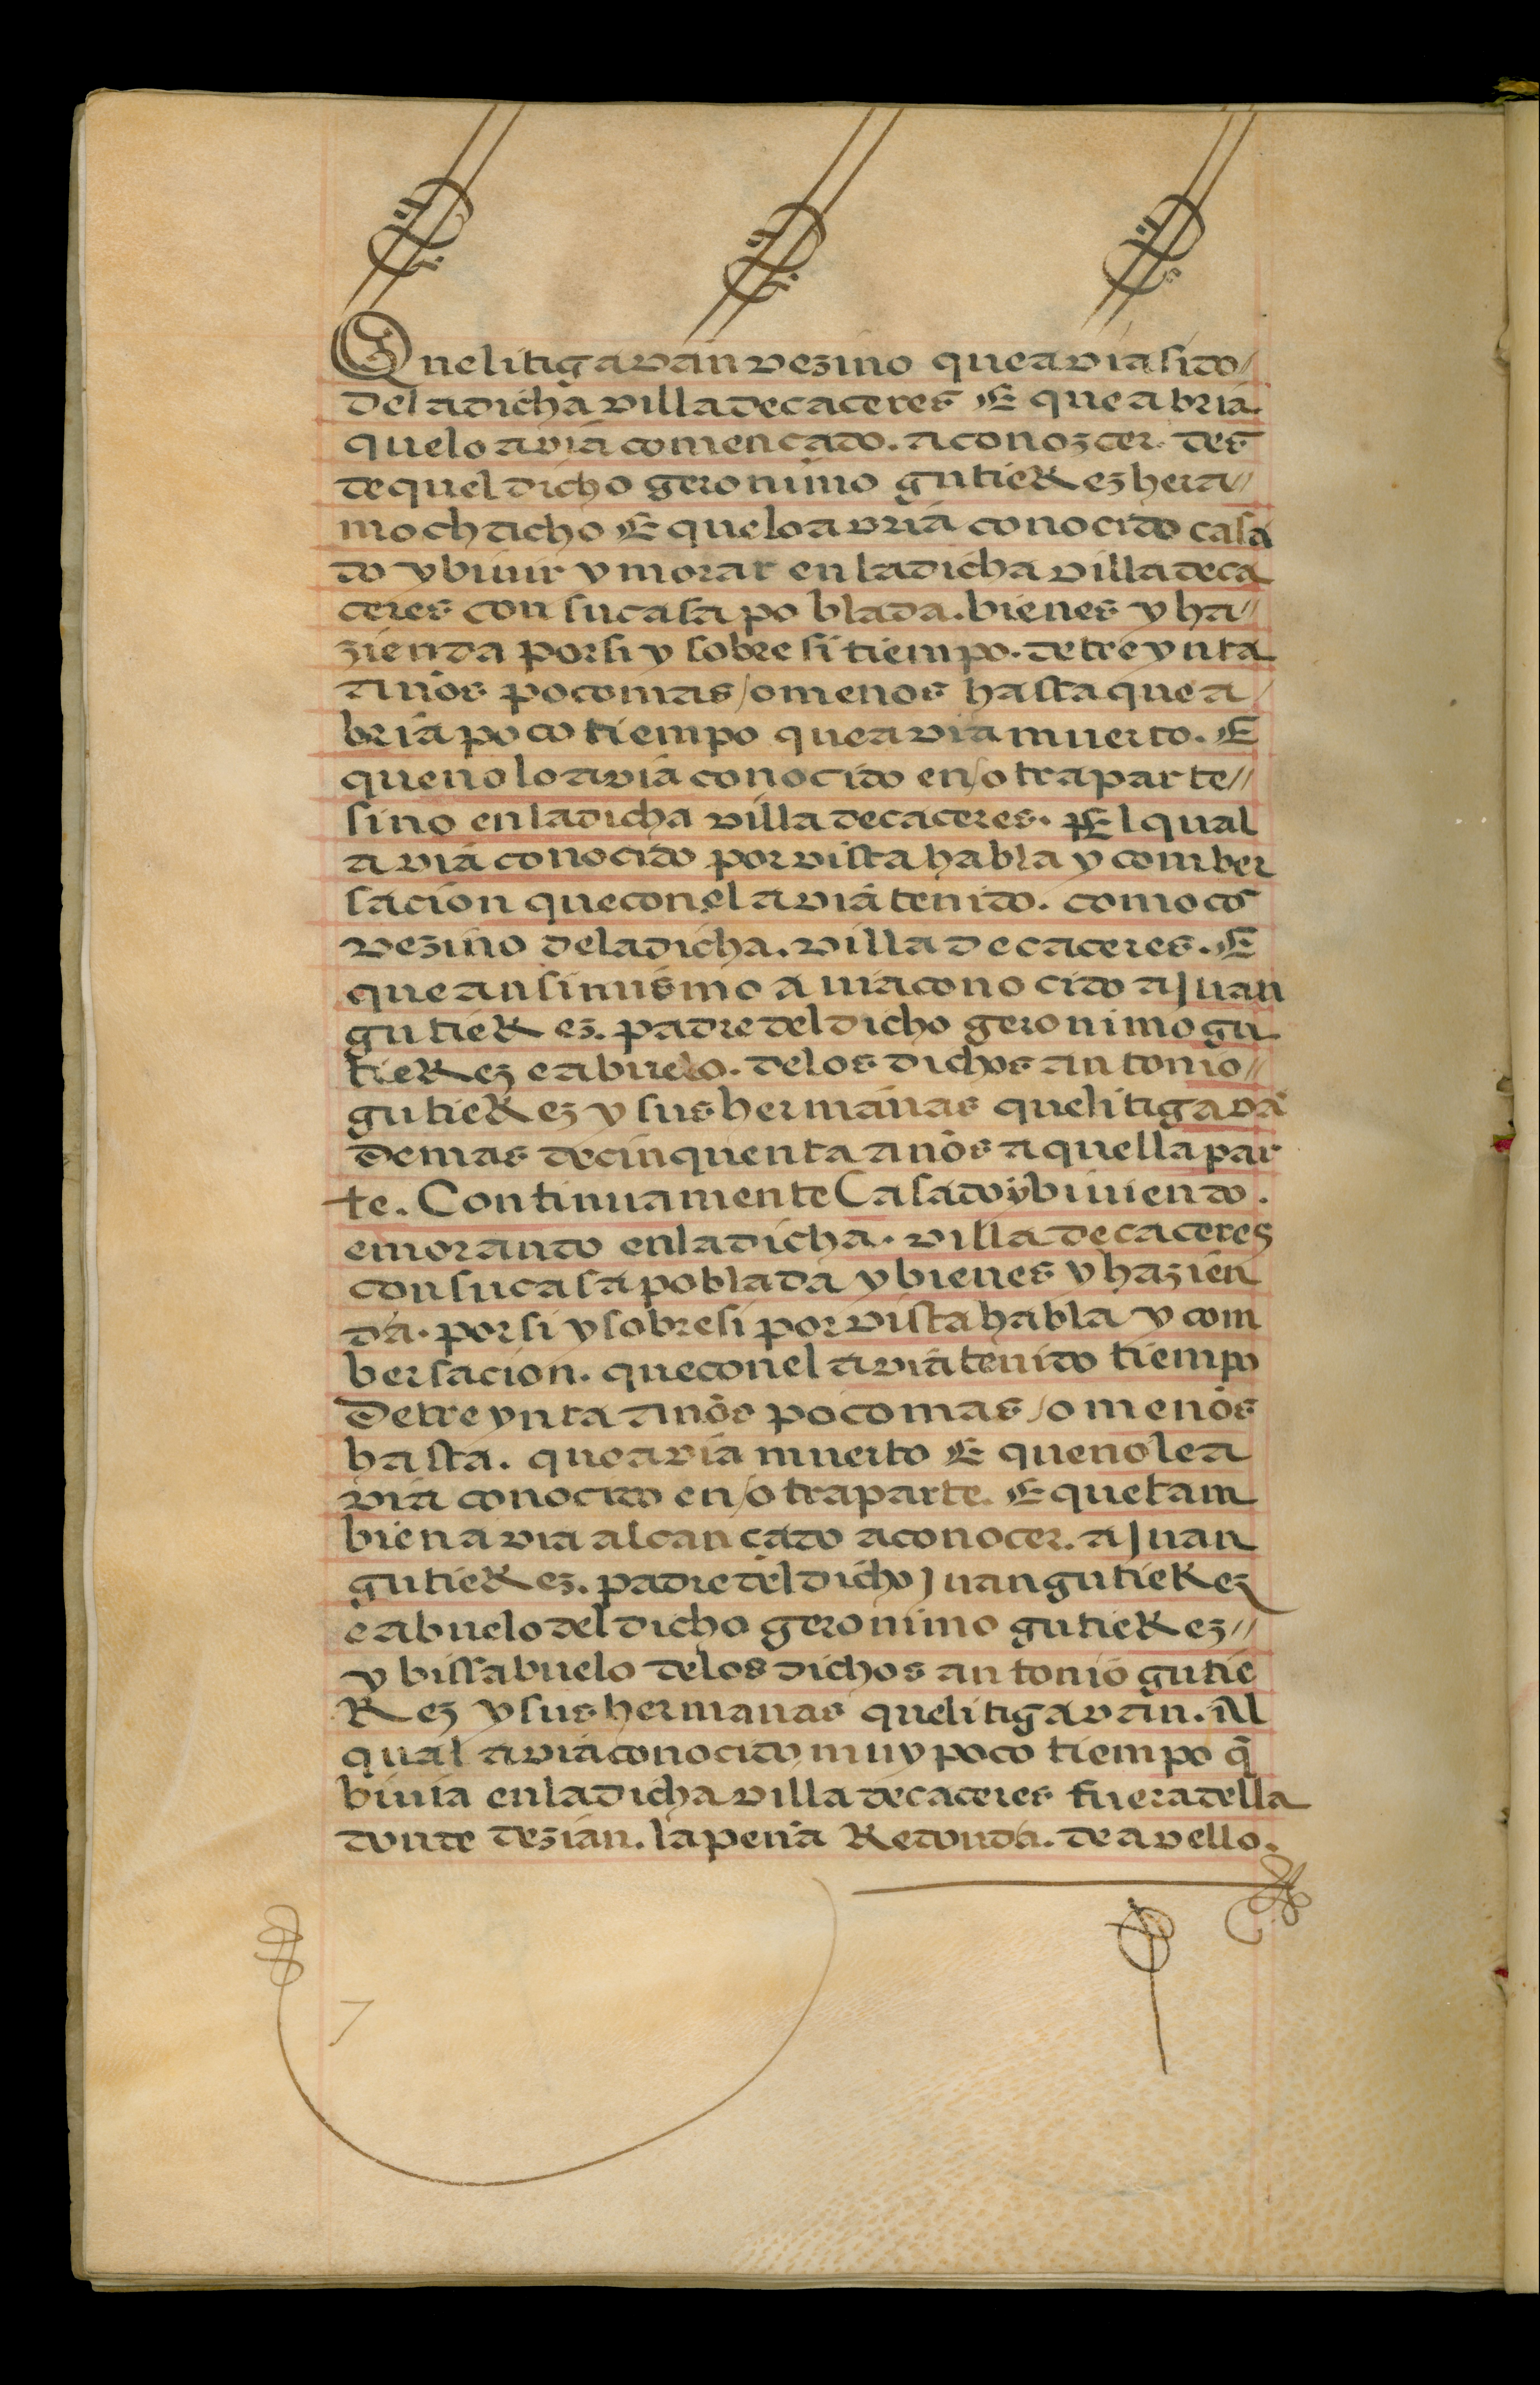 Que litigavan vezino que avia sido/
de la dicha villa de caceres E que abria.
que lo avia comencado. a conozcer. des
de quel dicho geronimo gutieRez hera//
mochacho E que lo avria conocido casa
do y biuir y morar en la dicha villa de ca
ceres con su casa poblada. bienes y ha//
zienda por si y sobre si tiempo. de treynta
años poco mas/o menos hasta que a/
bria poco tiempo que avia muerto. E
que no lo avia conocido en/otra parte//
sino en la dicha villa de caceres. El qual
avia conocido por vista habla y comber
sacion que con el avia tenido. como co
vezino de la dicha. villa de caceres. E
que ansimismo auia conocido a Juan
gutieRez. padre del dicho geronimo gu
tieRez e abuelo. de los dichos antonio//
gutieRez y sus hermanas que litigavā
de mas de cinquenta años a quella par
te. Continuamente Casado y biuiendo.
e morando en la dicha. villa de caceres
con su casa poblada y bienes y hazien
da. por si y sobre si por vista habla y com
bersacion. que con el avia tenido tiempo
de treynta años poco mas/o menos
hasta. que avia muerto E que no le a
via conocido en/otra parte. E que tam
bien avia alcancado a conocer. a Juan
gutieRez. padre del dicho Juan gutieRez
e abuelo del dicho geronimo gutieRez//
y bissabuelo de los dichos antonio gutie
Rez y sus hermanas que litigavan. Al
qual avia conocido muy poco tiempo q̄
biuia en la dicha villa de caceres fuera della
donde dezian. la peña Redonda. de avello.
7